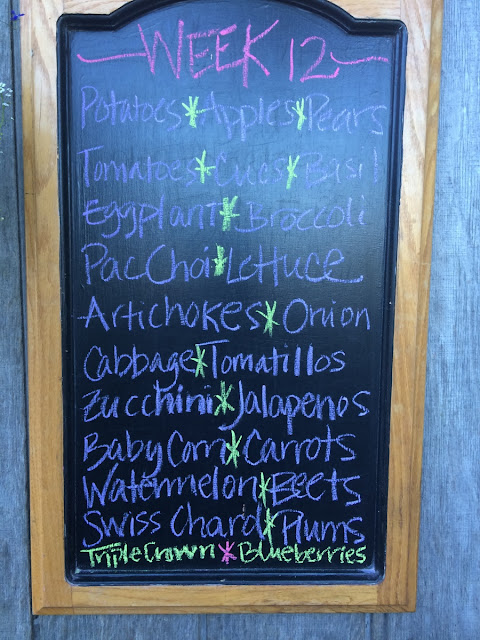 WEEK 12
Potatoes*Apples*Pears
Tomatoes*Cukes*Basil
Eggplant*Broccoli
Pac Choi*Lettuce
Artichokes*Onion
Cabbage*Tomatillos
Zucchini*Jalapenos
Baby Corn*Carrots
Watermelon*Beets
Swiss Chard*Plums
Triple Crown*Blueberries